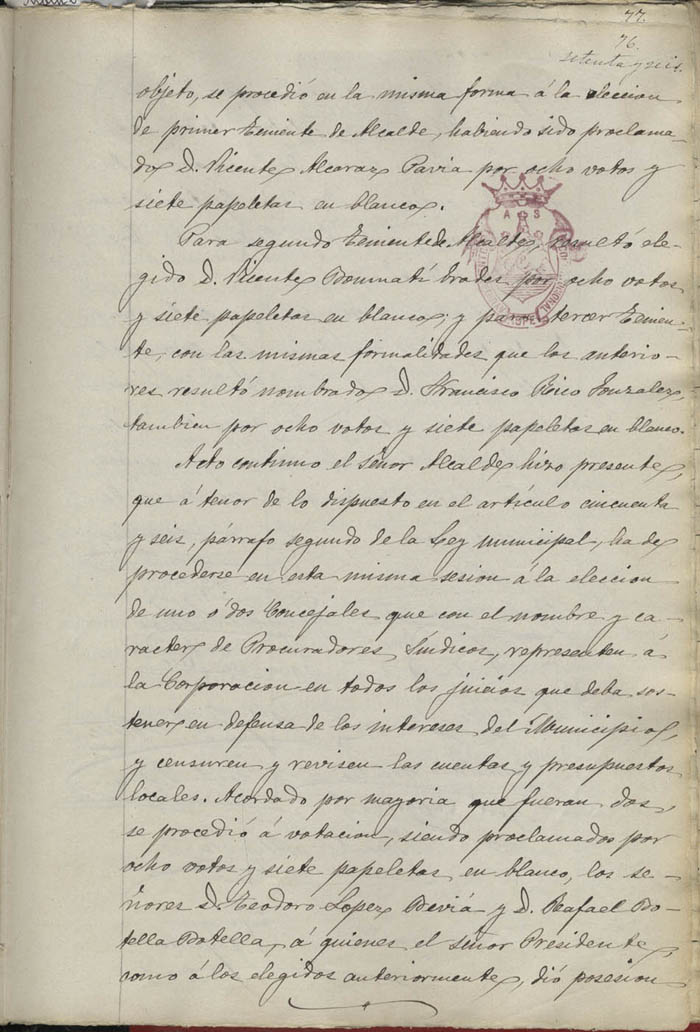 77.
76.
setenta y seis.
objeto, se procedió en la misma forma á la eleccion
de primer Teniente de Alcalde, habiendo sido proclama-
do D. Vicente Alcaraz Pavia por ocho votos y
siete papeletas en blanco.
Para segundo Teniente de Alcalde, resultó ele-
gido D. Vicente Boumatí Brades por ocho votos
y siete papeletas en blanco; y para tercer Tenien-
te, con las mismas formalidades que los anterio-
res resultó nombrado D. Francisco Rico Gonzalez,
tambien por ocho votos y siete papeletas en blanco.
Acto continuo el señor Alcalde hizo presente,
que á tenor de lo dispuesto en el artículo cincuenta
y seis, párrafo segundo de la Ley municipal, ha de
procederse en esta misma sesion á la eleccion
de uno ó dos Concejales que con el nombre y ca-
racter de Procuradores Síndicos, representen á
la Corporacion en todos los juicios que deba sos-
tener en defensa de los intereses del Municipio,
y censuren y revisen las cuentas y presupuestos
locales. Acordado por mayoria que fueran dos,
se procedió á votacion, siendo proclamados por
ocho votos y siete papeletas en blanco, los se-
ñores D. Teodoro López Deviá y D. Rafael Bo-
tella Botella, á quienes el señor Presidente,
como á los elegidos anteriormente, dió posesion
A S